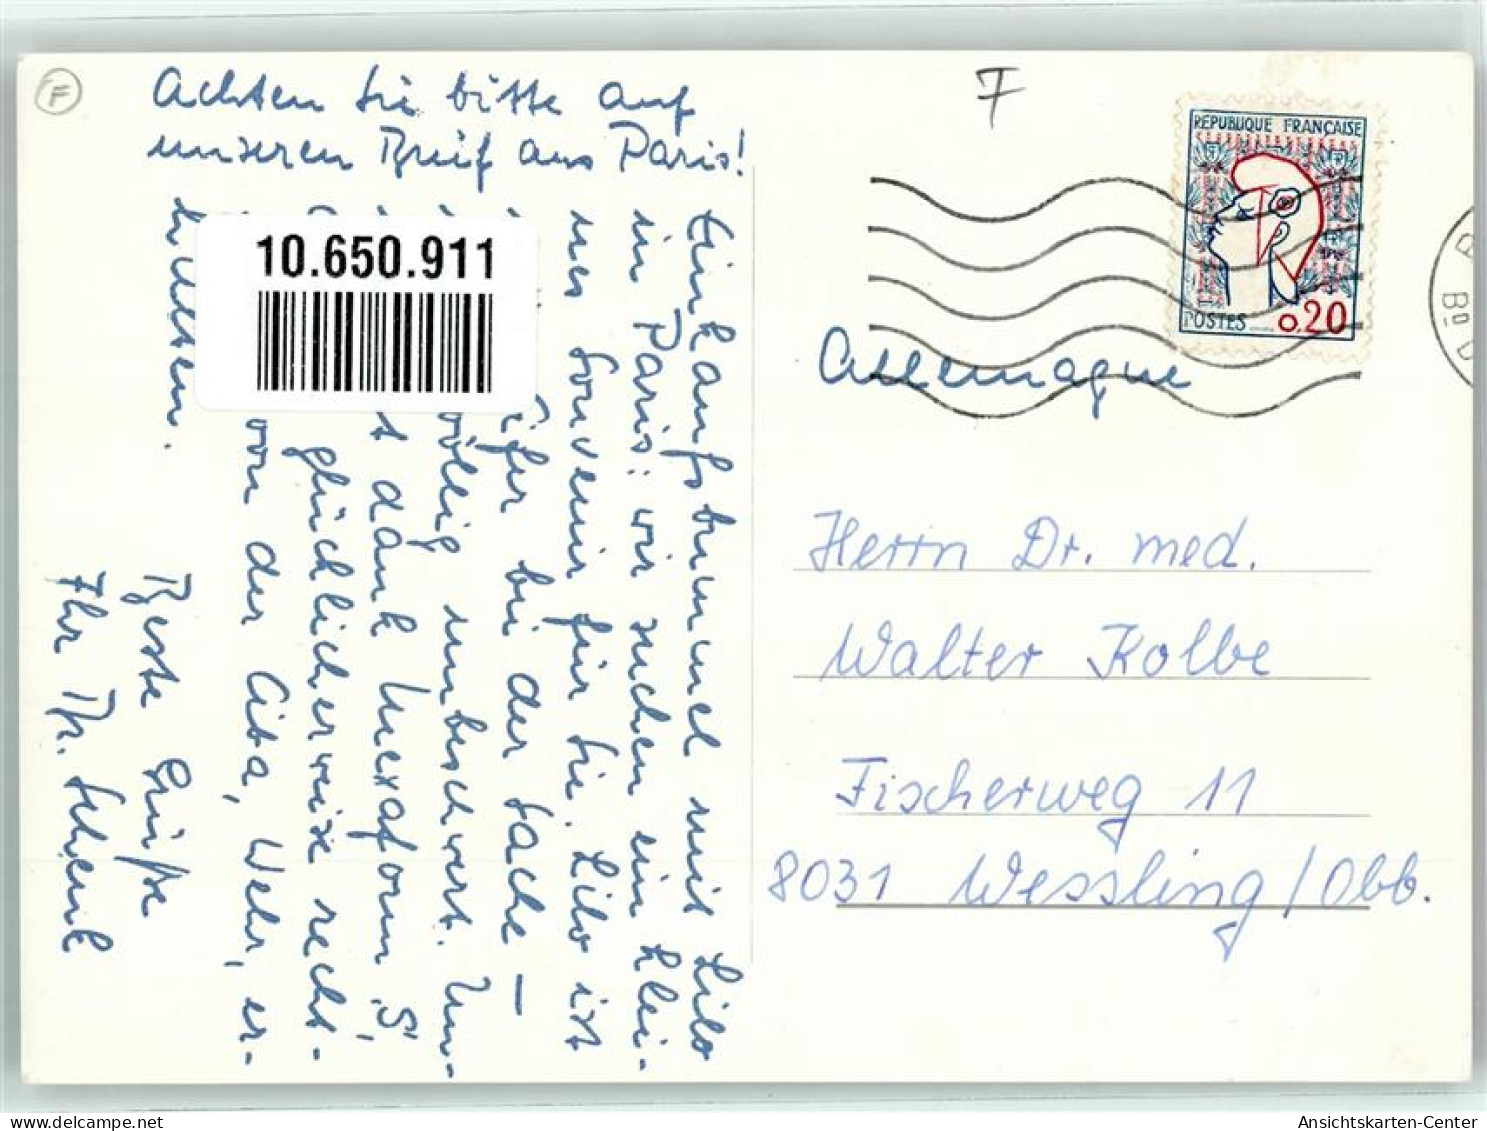 F
Achten Sie bitte auf
unseren Brief aus Paris!
Einkaufsbummel mit Lilo
in Paris: wir suchen ein klei-
nes Souvenir für Sie. Lilo ist
bei der Sache –
völlig unbeschwert. Un-
dank Mexaform S,
glücklicherweise recht-
von der Ciba, Wehr, er-
hielten.
Beste Grüße
Ihr Th. Schenk
10.650.911
F
REPUBLIQUE FRANÇAISE
POSTES 0,20
Bd D
Allemagne
Herrn Dr. med.
Walter Kolbe
Fischerweg 11
8031 Wessling/Obb.
www.delcampe.net
Ansichtskarten-Center